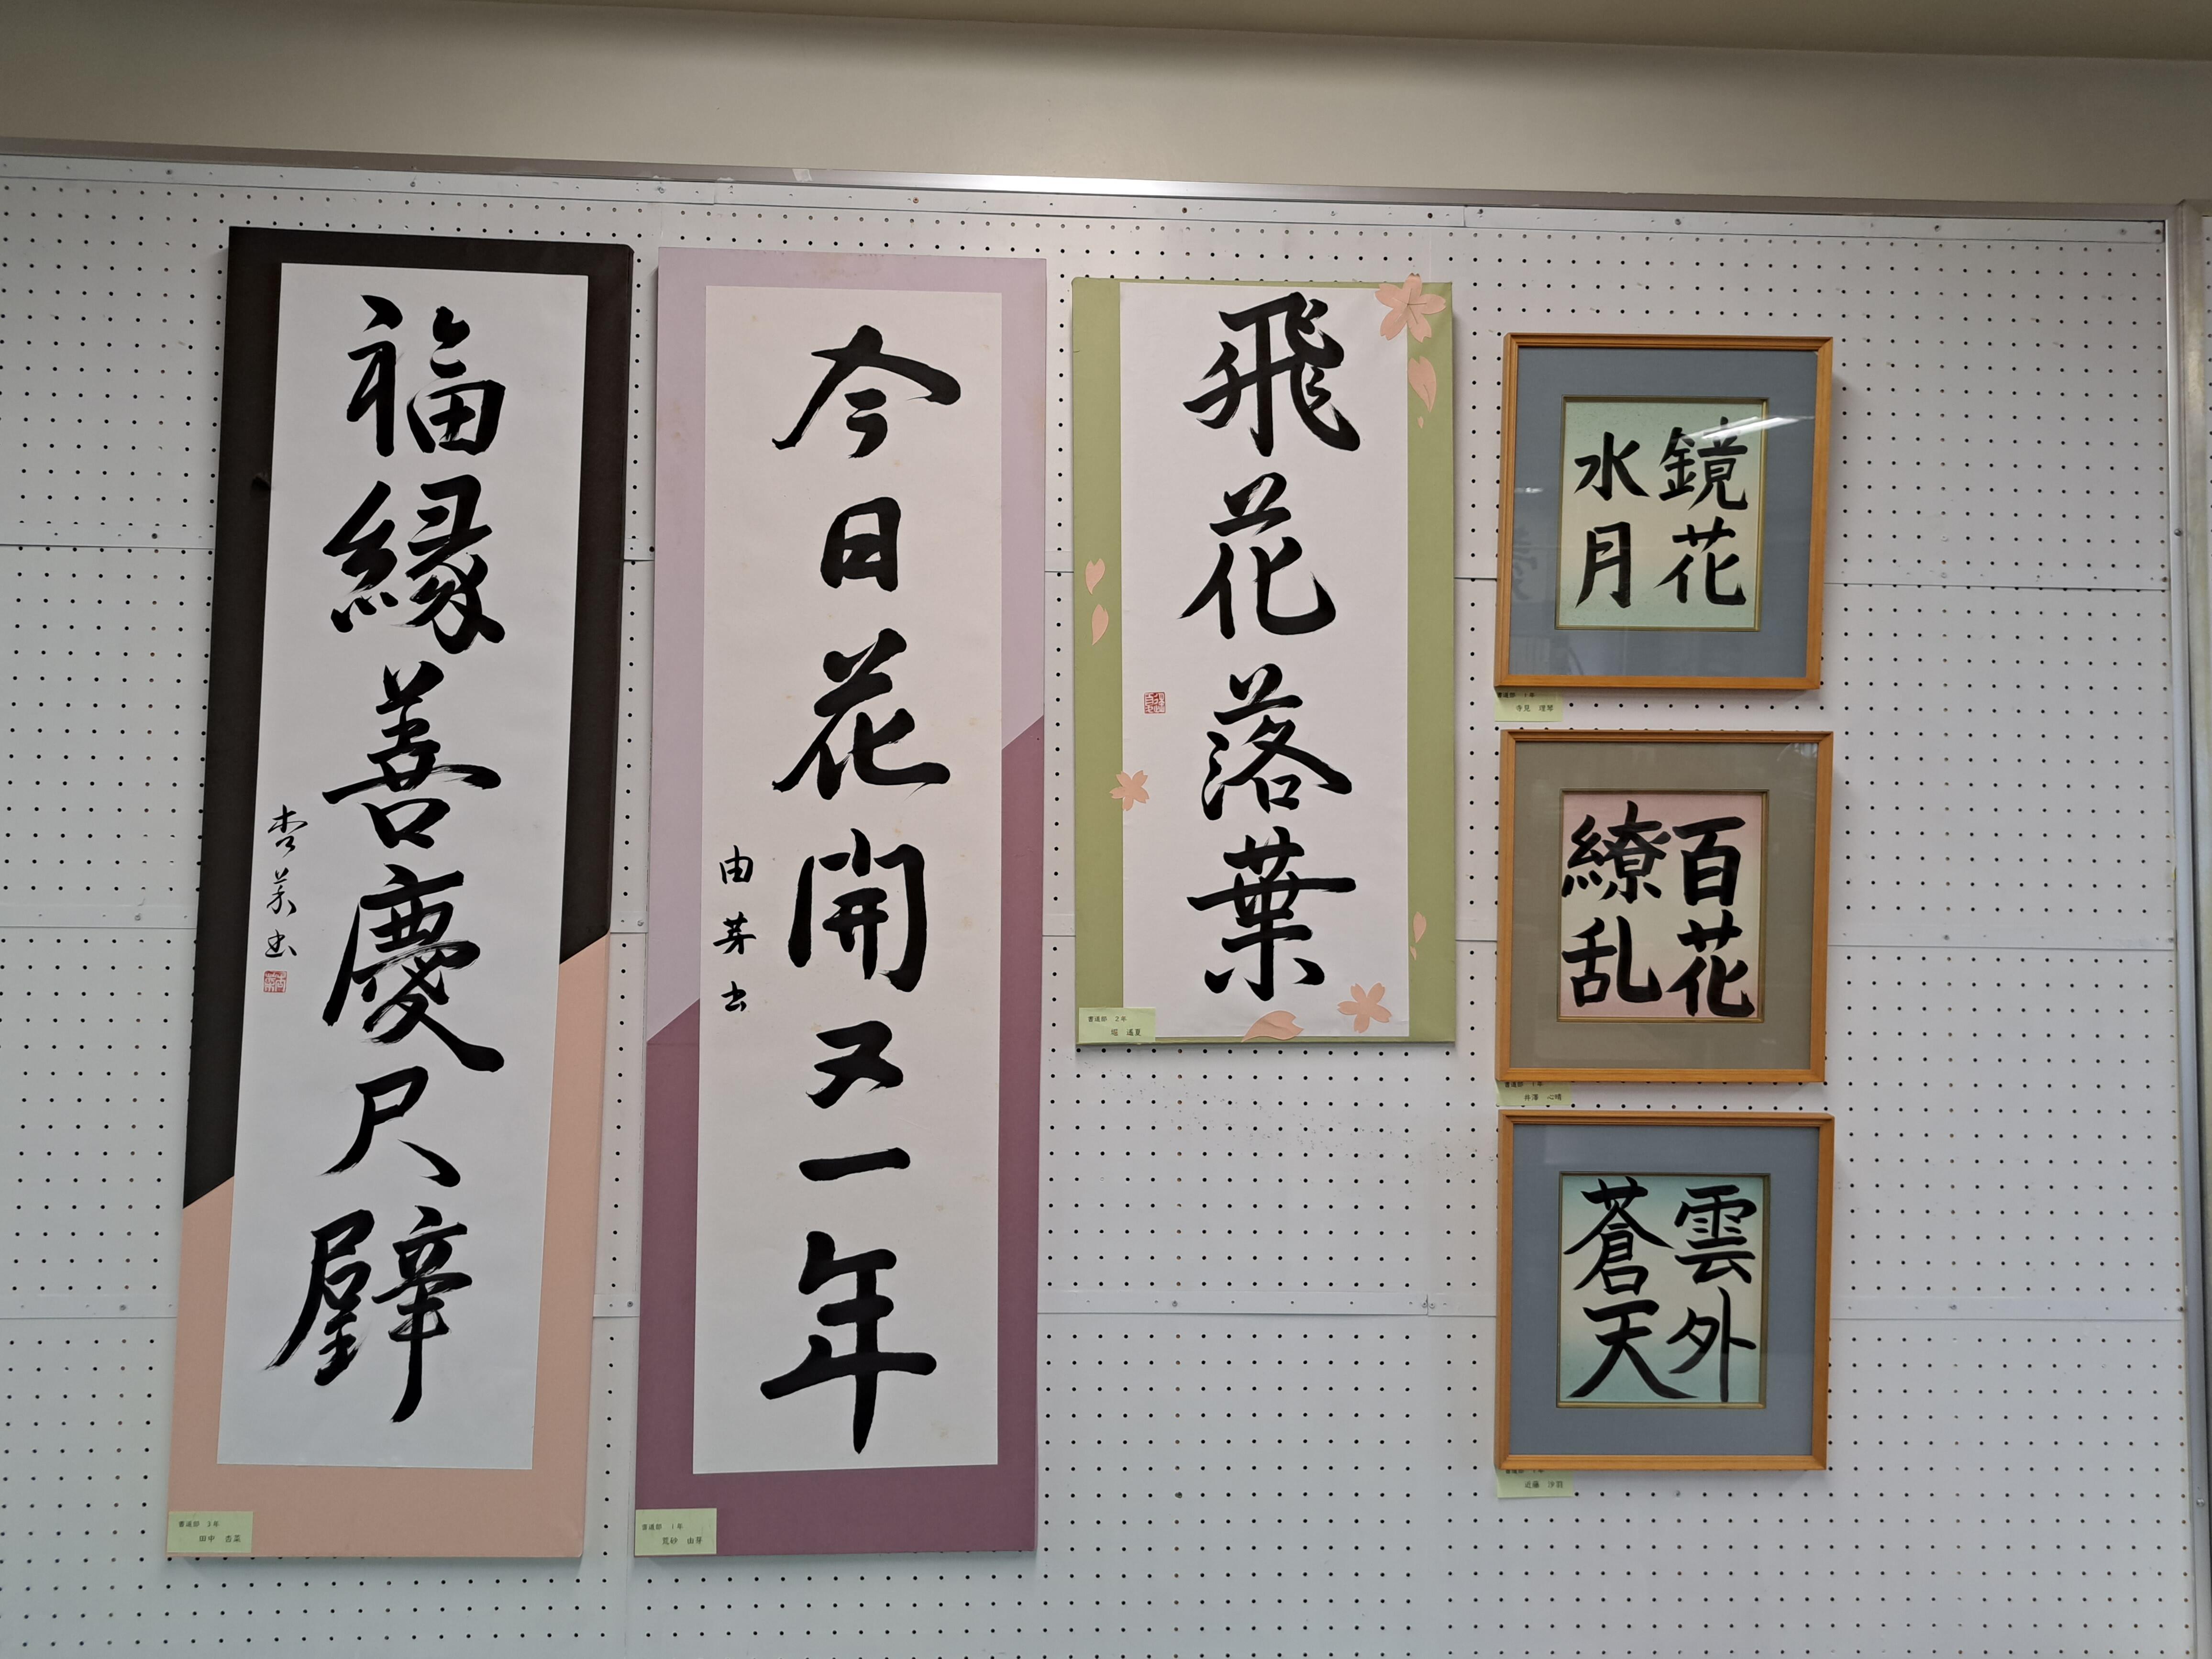 福縁善慶尺璧
杏菜書
書道部 3年
田中 杏菜
今日花開又一年
由芽書
書道部 1年
由芽
飛花落葉
書道部 2年
堀 遥夏
鏡花
水月
書道部 1年
寺見 理琴
百花
繚乱
書道部 1年
井澤 心晴
雲外
蒼天
書道部 1年
近藤 沙羽